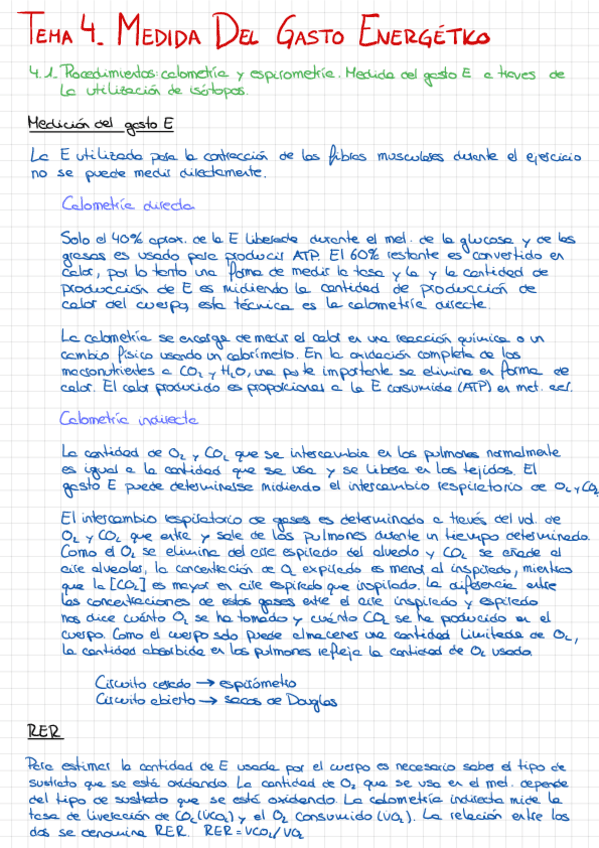 TEMA 4. MEDIDA DEL GASTO ENERGÉTICO
4.1. Procedimientos: calometría y espirometría. Medida del gasto E a traves de
la utilización de isótopos.
Medición del gasto E
La E utilizada para la contracción de las fibras musculares durante el ejercicio
no se puede medir directamente.
Calometría directa
Solo el 40% aprox. de la E liberada durante el met. de la glucosa y de las
grasas es usado para producir ATP. El 60% restante es convertido en
calor, por lo tanto una forma de medir la tasa y la y la cantidad de
producción de E es midiendo la cantidad de producción de
calor del cuerpo, esta técnica es la calometría directe.
La calometría se encarga de medir el calor en una reacción química o un
cambio físico usando un calorímetro. En la oxidación completa de los
macronutrientes a CO₂ y H₂O, una parte importante se elimina en forma de
calor. El calor producido es proporcional a la E consumida (ATP) en met. cel.
Calometría indirecta
La cantidad de O₂ y CO₂ que se intercambia en los pulmones normalmente
es igual a la cantidad que se usa y se libera en los tejidos. El
gasto E puede determinarse midiendo el intercambio respiratorio de O₂ y CO₂
El intercambio respiratorio de gases es determinado a través del vol. de
O₂ y CO₂ que entra y sale de los pulmones durante un tiempo determinado.
Como el O₂ se elimina del aire espirado del alveolo y CO₂ se añade al
aire alveolar, la concentración de O₂ expirado es menor al inspirado, mientras
que la [CO₂] es mayor en aire espirado que inspirado. La diferencia entre
las concentraciones de estos gases entre el aire inspirado y espirado
nos dice cuánto O₂ se ha tomado y cuánto CO₂ se ha producido en el
cuerpo. Como el cuerpo solo puede almacenar una cantidad limitada de O₂,
la cantidad absorbida en los pulmones refleja la cantidad de O₂ usada
Circuito cerrado → espirómetro
Circuito abierto → sacos de Douglas
RER
Para estimar la cantidad de E usada por el cuerpo es necesario saber el tipo de
sustrato que se está oxidando. La cantidad de O₂ que se usa en el met. depende
del tipo de sustrato que se está oxidando. La calometría indirecta mide la
tasa de liveración de CO₂ (VCO₂) y el O₂ consumido (VO₂). La relación entre los
dos se denomina RER. RER = VCO₂/VO₂